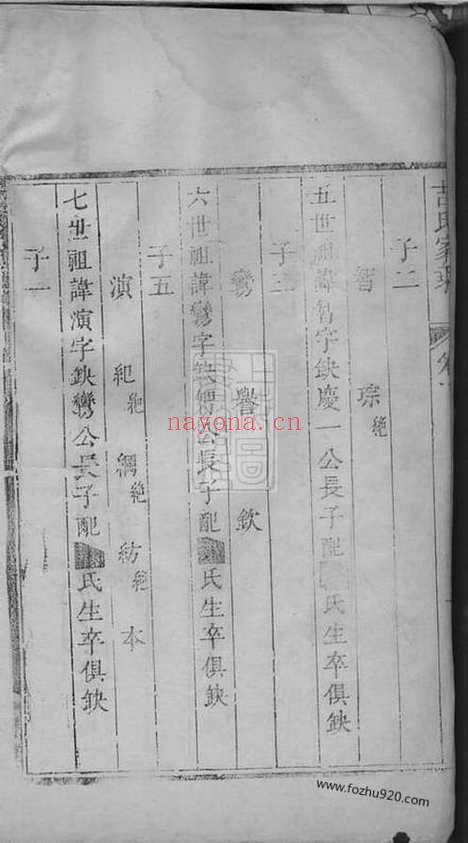 子二
智 琮絶
五世祖諱智字鈌慶一公長子配 氏生卒俱鈌
子三
鸞 譽 欽
六世祖諱鸞字鈌智公長子配 氏生卒俱鈌
子五
演 紀絶 綱絶 紡絶 本
七世祖諱演字鈌鸞公長子配 氏生卒俱鈌
子一
nayona.cn
www.fozhu920.com